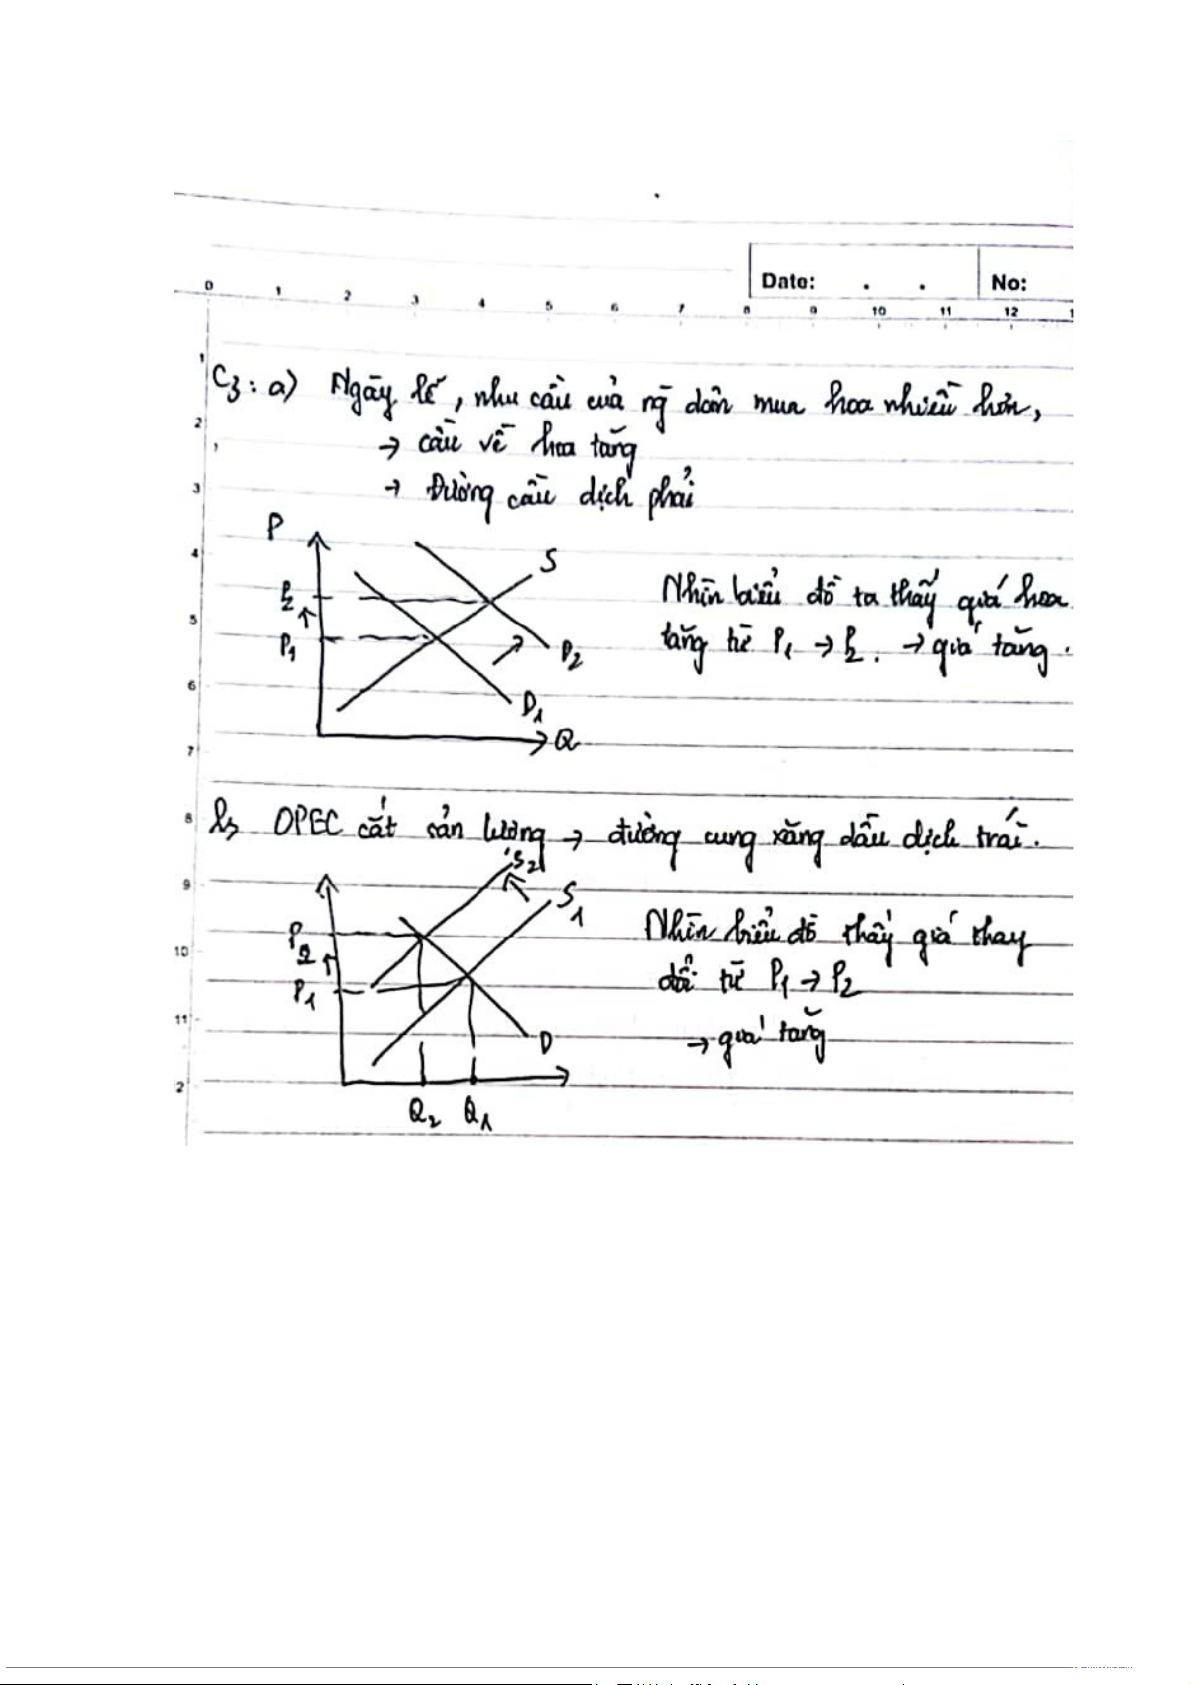 Date: . . No:
0 1 2 3 4 5 6 7 8 9 10 11 12 1
1
C3: a) Ngày lễ, nhu cầu của ng̀ dân mua hoa nhiều hơn,
2 → cầu về hoa tăng
3 → Đường cầu dịch phải
P
4 S
P2 Nhìn biểu đồ ta thấy giá hoa
5 P1 tăng từ P1 → P2. → giá tăng.
D2
6 D1
7 Q
8 b, OPEC cắt sản lượng → đường cung xăng dầu dịch trái.
S2
9 S1
P2 Nhìn biểu đồ thấy giá thay
10 đổi từ P1 → P2
P1
11 → giá tăng
D
2
Q2 Q1